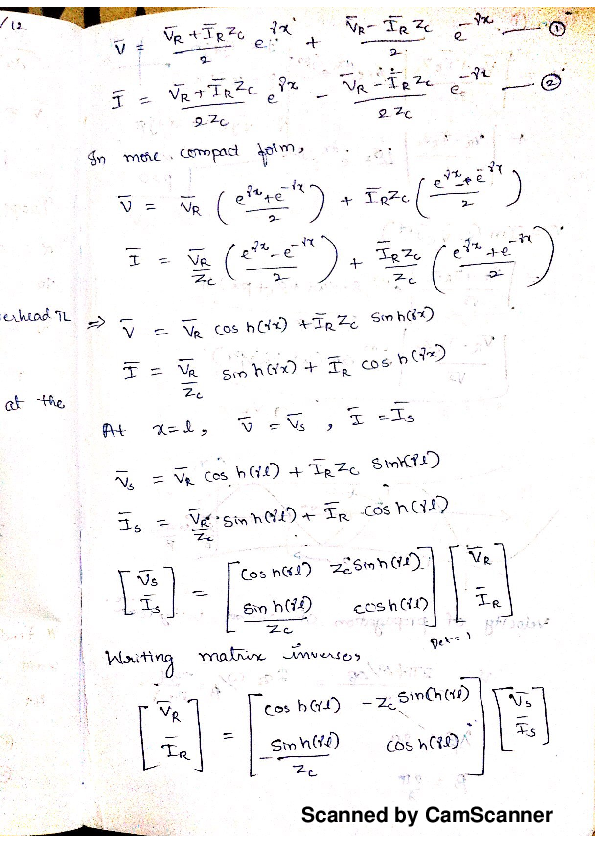 /12
V̄ = (V̄R + ĪR Zc)/2 e^γx + (V̄R − ĪR Zc)/2 e^−γx —— ①
Ī = (V̄R + ĪR Zc)/2Zc e^γx − (V̄R − ĪR Zc)/2Zc e^−γx —— ②
In more compact form,
V̄ = V̄R ((e^γx + e^−γx)/2) + ĪR Zc ((e^γx − e^−γx)/2)
Ī = V̄R/Zc ((e^γx − e^−γx)/2) + ĪR Zc/Zc ((e^γx + e^−γx)/2)
erhead TL ⇒ V̄ = V̄R cos h(γx) + ĪR Zc sinh(γx)
Ī = V̄R/Zc sin h(γx) + ĪR cos h(γx)
at the
At x=l, V̄ = V̄s, Ī = Īs
V̄s = V̄R cos h(γl) + ĪR Zc sinh(γl)
Īs = V̄R/Zc · sin h(γl) + ĪR cos h(γl)
[V̄s Īs] = [cos h(γl) Zc sin h(γl) sin h(γl)/Zc cosh(γl)] [V̄R ĪR]
Det = 1
Writing matrix inverse,
[V̄R ĪR] = [cos h(γl) −Zc sin(h(γl) −sin h(γl)/Zc cos h(γl)] [V̄s Īs]
Scanned by CamScanner